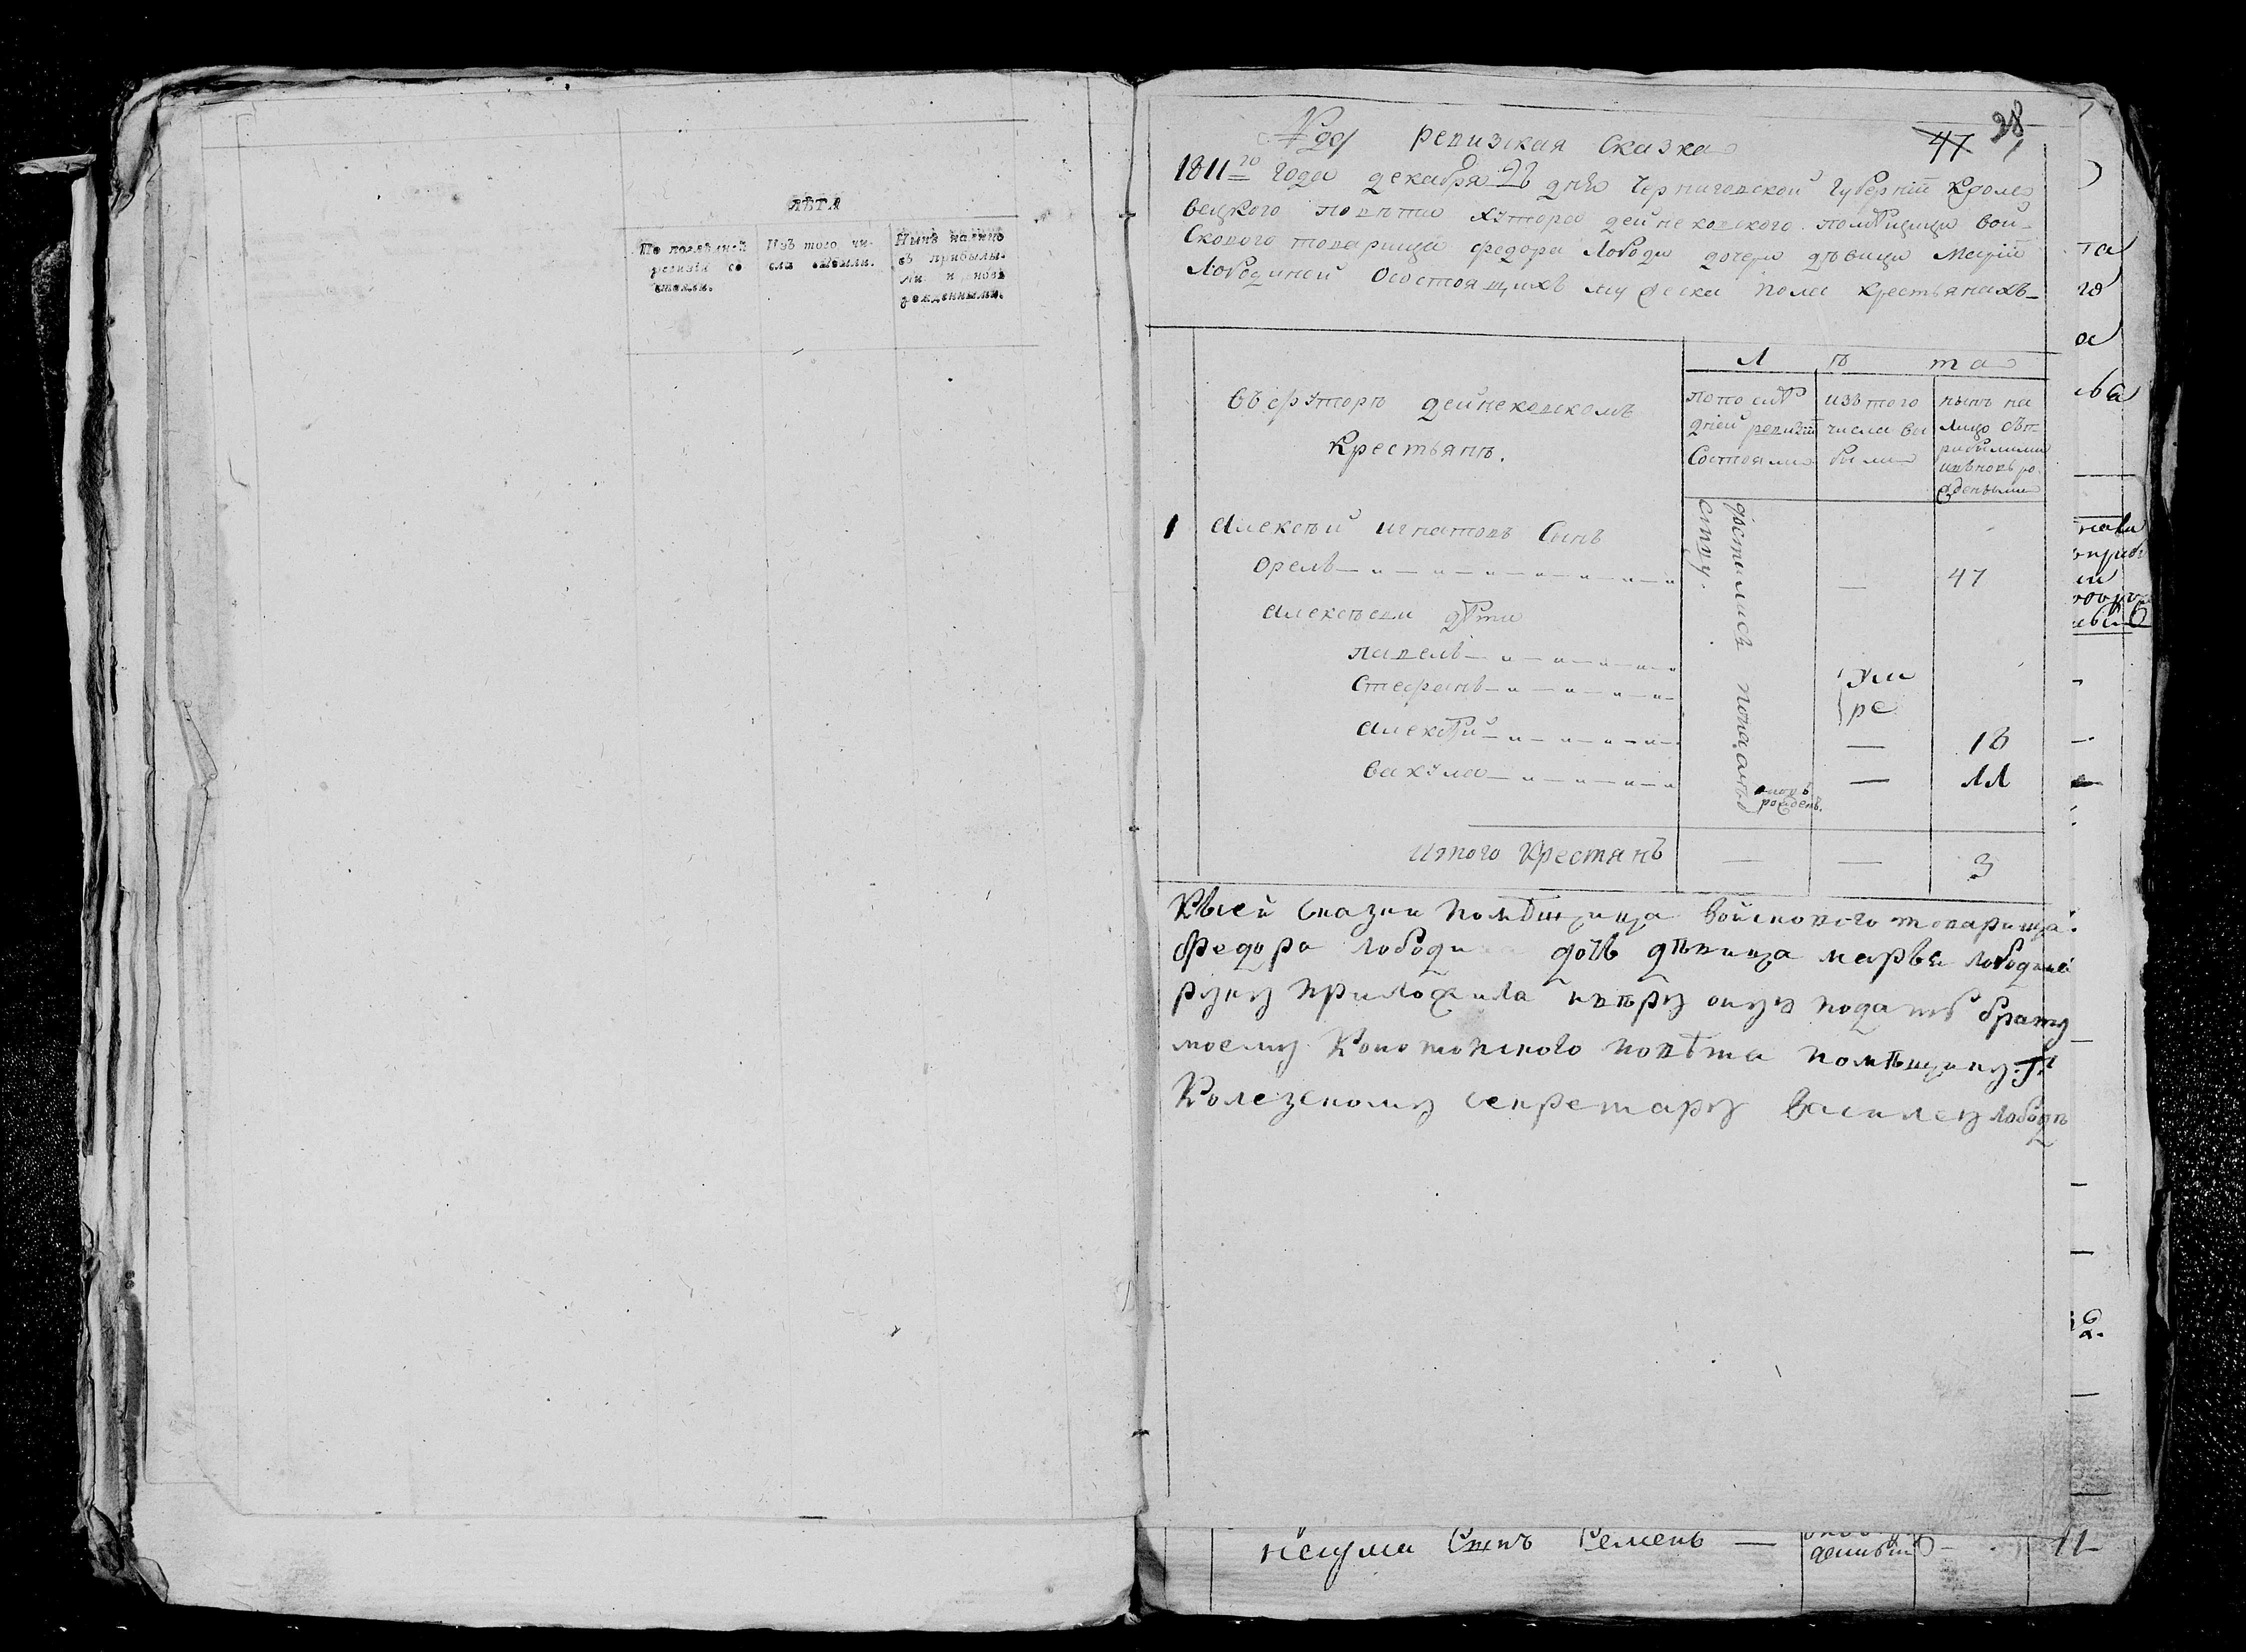 ЛѢТА
По послѣдней ревизіи со стояли.
Изъ того чи- сла выбыли.
Нынѣ на лицо съ прибылы- ми и вновь рожденными.
ревизская сказка
47 28
1811го года декабря дня Черниговской губерніи Кроле
вецкого повѣта хутора дейнековского помѣщици вой-
скового товарища федора Лободи дочери дѣвици Маріи
Лободиной Осостоящихъ мужеска пола крестьянахъ-
Л ѣ та
въ футорѣ дейнековскомъ
крестьянъ.
попослѣ дней ревизіи Состояли
изътого числа вы были
нынѣ на лицо съп рибылими ивновъ ро ждеными
1 Алексѣй игнатовъ Сынъ
Орелъ — 47
Алексѣеви дѣти
павелъ
Стефанъ
Уме ре
Алексѣй — 18
вакула — вновь рожденъ. — 11
Итого Крестянъ — — 3
Ксей сказки помѣщица войскового товарища
Федора Лободи дочь дѣвица марья Лободина
руку приложила ивѣру оную подать брату
моему Конотопского повѣта помѣщику: Гн
Колезскому секретару василеу лободѣ
Сынъ Семенъ — 11